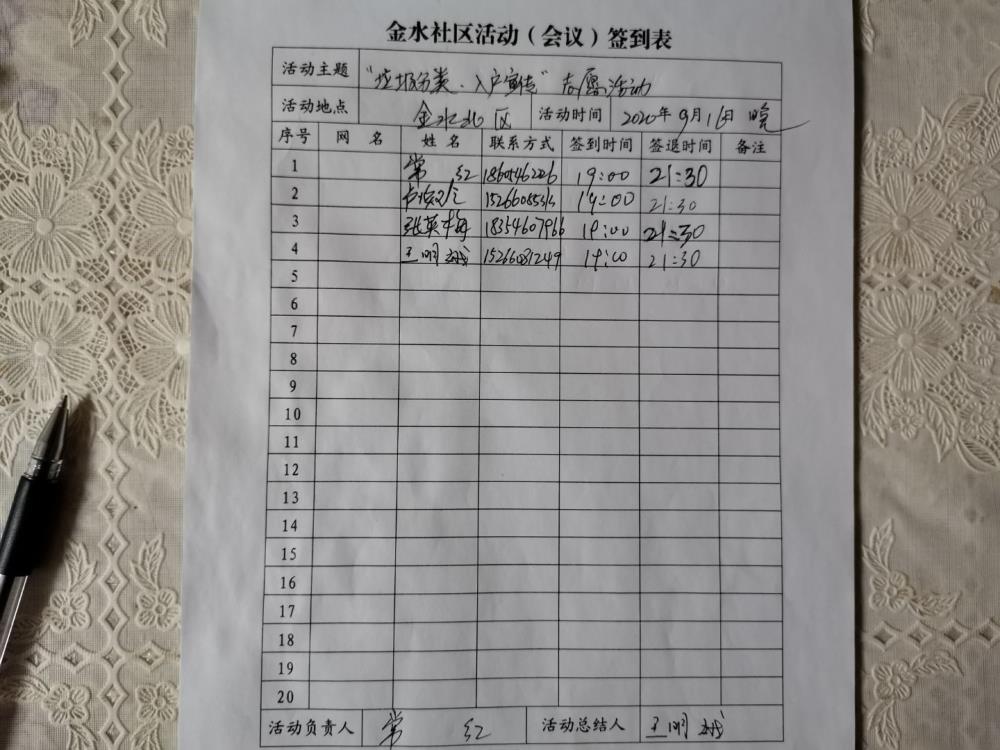 金水社区活动（会议）签到表
活动主题 "垃圾分类、入户宣传"志愿活动
活动地点 金水北区 活动时间 2020年9月16日 晚
序号 网 名 姓 名 联系方式 签到时间 签退时间 备注
1 常 红 19:00 21:30
2 19:00 21:30
3 张英梅 18354607966 19:00 21:30
4 王明 15266081249 19:00 21:30
5
6
7
8
9
10
11
12
13
14
15
16
17
18
19
20
活动负责人 常 红 活动总结人 王明